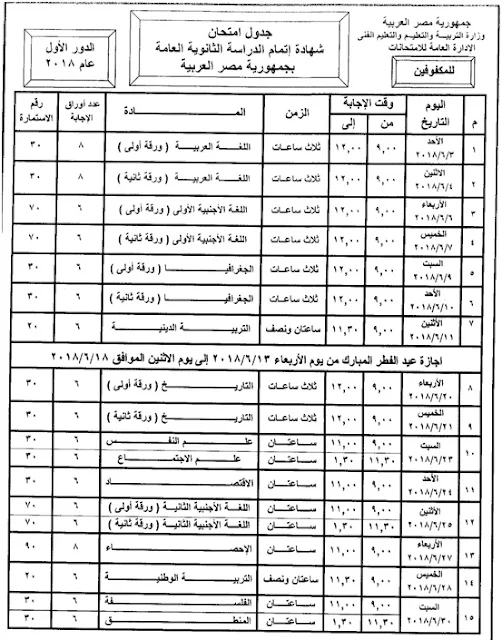 جمهورية مصر العربية
وزارة التربية والتعليم والتعليم الفنى
الادارة العامة للامتحانات
للمكفوفين
جدول امتحان
شهادة إتمام الدراسة الثانوية العامة
بجمهورية مصر العربية
الدور الأول
عام ٢٠١٨
م اليوم التاريخ وقت الإجابة من إلى الزمن المادة عدد أوراق الإجابة رقم الاستمارة
١ الأحد ٢٠١٨/٦/٣ ٩,٠٠ ١٢,٠٠ ثلاث ساعات اللغة العربية ( ورقة أولى ) ٨ ٣٠
٢ الأثنين ٢٠١٨/٦/٤ ٩,٠٠ ١٢,٠٠ ثلاث ساعات اللغة العربية ( ورقة ثانية ) ٨ ٣٠
٣ الأربعاء ٢٠١٨/٦/٦ ٩,٠٠ ١٢,٠٠ ثلاث ساعات اللغة الأجنبية الأولى ( ورقة أولى ) ٦ ٧٠
٤ الخميس ٢٠١٨/٦/٧ ٩,٠٠ ١٢,٠٠ ثلاث ساعات اللغة الأجنبية الأولى ( ورقة ثانية ) ٦ ٧٠
٥ السبت ٢٠١٨/٦/٩ ٩,٠٠ ١٢,٠٠ ثلاث ساعات الجغرافيا ( ورقة أولى ) ٦ ٣٠
٦ الأحد ٢٠١٨/٦/١٠ ٩,٠٠ ١٢,٠٠ ثلاث ساعات الجغرافيا ( ورقة ثانية ) ٦ ٣٠
٧ الأثنين ٢٠١٨/٦/١١ ٩,٠٠ ١١,٣٠ ساعتان ونصف التربية الدينية ٦ ٢٠
اجازة عيد الفطر المبارك من يوم الأربعاء ٢٠١٨/٦/١٣ إلى يوم الاثنين الموافق ٢٠١٨/٦/١٨
٨ الأربعاء ٢٠١٨/٦/٢٠ ٩,٠٠ ١٢,٠٠ ثلاث ساعات التاريخ ( ورقة أولى ) ٦ ٣٠
٩ الخميس ٢٠١٨/٦/٢١ ٩,٠٠ ١٢,٠٠ ثلاث ساعات التاريخ ( ورقة ثانية ) ٦ ٣٠
١٠ السبت ٢٠١٨/٦/٢٣ ٩,٠٠ ١١,٠٠ ساعتان علم النفس ٦ ٣٠
١١,٣٠ ١,٣٠ ساعتان علم الاجتماع ٦ ٣٠
١١ الأحد ٢٠١٨/٦/٢٤ ٩,٠٠ ١١,٠٠ ساعتان الاقتصاد ٦ ٣٠
١٢ الأثنين ٢٠١٨/٦/٢٥ ٩,٠٠ ١١,٠٠ ساعتان اللغة الأجنبية الثانية ( ورقة أولى ) ٦ ٧٠
١١,٣٠ ١,٣٠ ساعتان اللغة الأجنبية الثانية ( ورقة ثانية ) ٦ ٧٠
١٣ الأربعاء ٢٠١٨/٦/٢٧ ٩,٠٠ ١١,٠٠ ساعتان الإحصاء ٨ ٩٠
١٤ الخميس ٢٠١٨/٦/٢٨ ٩,٠٠ ١١,٣٠ ساعتان ونصف التربية الوطنية ٦ ٢٠
١٥ السبت ٢٠١٨/٦/٣٠ ٩,٠٠ ١١,٠٠ ساعتان الفلسفة ٦ ٣٠
١١,٣٠ ١,٣٠ ساعتان المنطق ٦ ٣٠